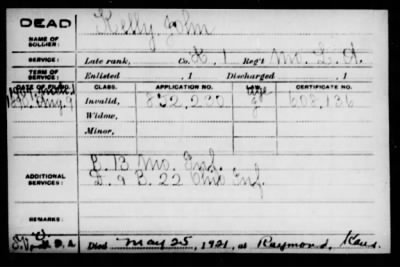 DEAD
NAME OF SOLDIER:
Kelly John
SERVICE:
Late rank, Co. K. 1 Reg't Mo. L. A.
TERM OF SERVICE:
Enlisted , 1 Discharged , 1
DATE OF FILING.
CLASS.
APPLICATION NO.
CERTIFICATE NO.
Aug. 9
Invalid, 852,230 608,136
Widow,
Minor,
ADDITIONAL SERVICES:
B. 13 Mo. Inf.
D. & B. 22 Ohio Inf.
REMARKS:
Died May 25, 1921, at Raymond, Kans.